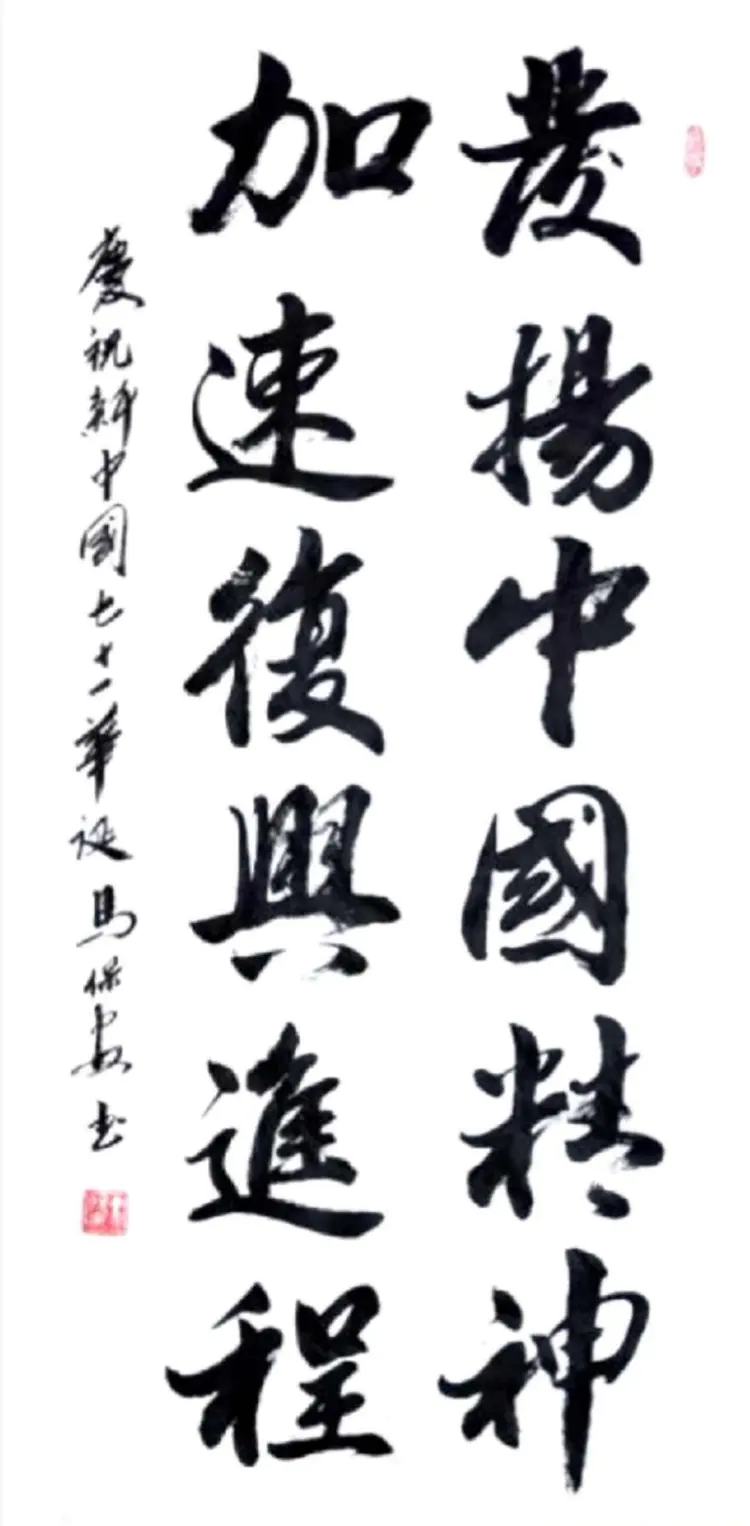 發揚中國精神
加速復興進程
慶祝新中國七十一華誕 馬保书